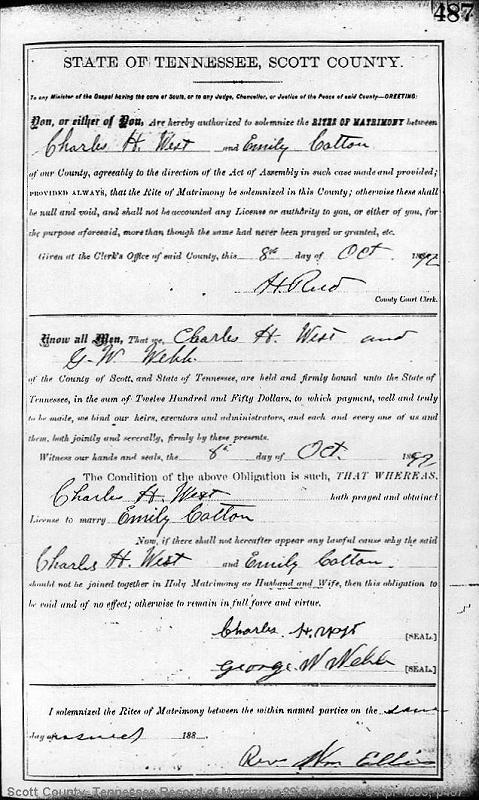 487
STATE OF TENNESSEE, SCOTT COUNTY.
To any Minister of the Gospel having the care of Souls, or to any Judge, Chancellor, or Justice of the Peace of said County—GREETING:
You, or either of You, Are hereby authorized to solemnize the RITES OF MATRIMONY between
Charles H. West and Emily Cotton
of our County, agreeably to the direction of the Act of Assembly in such case made and provided;
PROVIDED ALWAYS, that the Rite of Matrimony be solemnized in this County; otherwise these shall
be null and void, and shall not be accounted any License or authority to you, or either of you, for
the purpose aforesaid, more than though the same had never been prayed or granted, etc.
Given at the Clerk's Office of said County, this 8th day of Oct 1892
H. Reed
County Court Clerk.
Know all Men, That we, Charles H. West and
G. W. Webb
of the County of Scott, and State of Tennessee, are held and firmly bound unto the State of
Tennessee, in the sum of Twelve Hundred and Fifty Dollars, to which payment, well and truly
to be made, we bind our heirs, executors and administrators, and each and every one of us and
them, both jointly and severally, firmly by these presents.
Witness our hands and seals, the 8th day of Oct. 1892
The Condition of the above Obligation is such, THAT WHEREAS,
Charles H. West hath prayed and obtained
License to marry Emily Cotton
Now, if there shall not hereafter appear any lawful cause why the said
Charles H. West and Emily Cotton
should not be joined together in Holy Matrimony as Husband and Wife, then this obligation to
be void and of no effect; otherwise to remain in full force and virtue.
Charles H. West [SEAL.]
George W Webb [SEAL.]
I solemnized the Rites of Matrimony between the within named parties on the same
day 188
Rev Wm Ellis
Scott County, Tennessee Record of Marriages